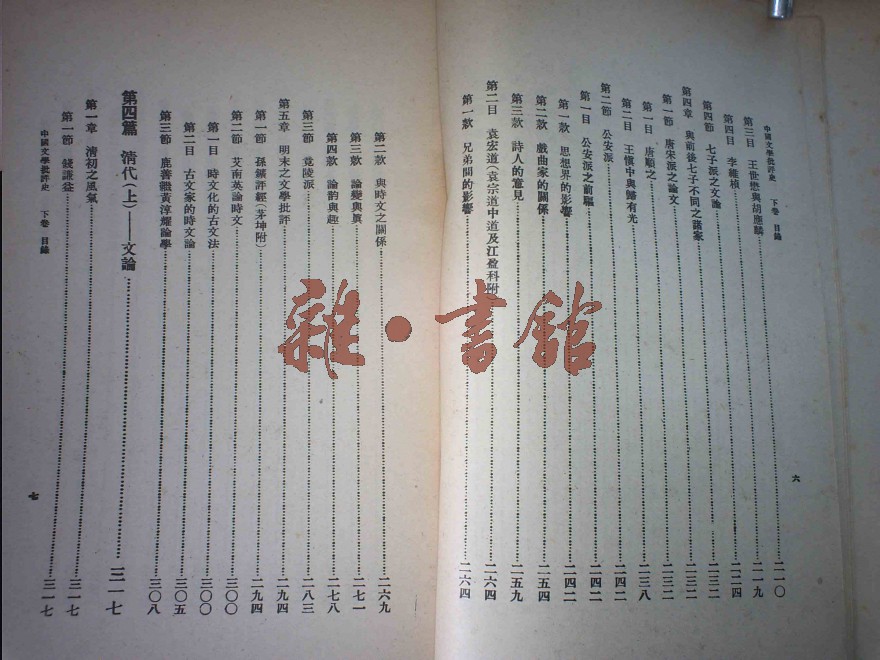 中國文學批評史 下卷 目錄
六
第三目 王世懋與胡應麟 二一〇
第四目 李維楨 二一九
第四節 七子派之文論 二二四
第四章 與前後七子不同之諸家 二三二
第一節 唐宋派之論文 二三二
第一目 唐順之 二三二
第二目 王愼中與歸有光 二三八
第二節 公安派 二四二
第一目 公安派之前驅 二四二
第一款 思想界的影響 二四二
第二款 戲曲家的關係 二五四
第三款 詩人的意見 二五九
第二目 袁宏道(袁宗道中道及江盈科附 二六四
第一款 兄弟間的影響 二六四
第二款 與時文之關係 二六九
第三款 論變與眞 二七一
第四款 論韵與趣 二七八
第三節 竟陵派 二八三
第五章 明末之文學批評 二九四
第一節 孫鑛評經(茅坤附) 二九四
第二節 艾南英論時文 三〇〇
第一目 時文化的古文法 三〇〇
第二目 古文家的時文論 三〇五
第三節 鹿善繼黃淳耀論學 三〇八
第四篇 清代(上)——文論 三一七
第一章 清初之風氣 三一七
第一節 錢謙益 三一七
中國文學批評史 下卷 目錄
七
雜·書館